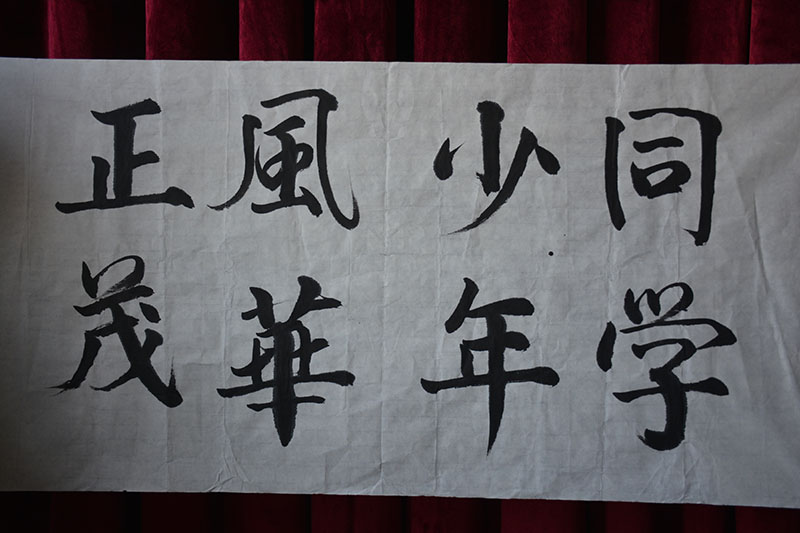 同学
少年
風華
正茂